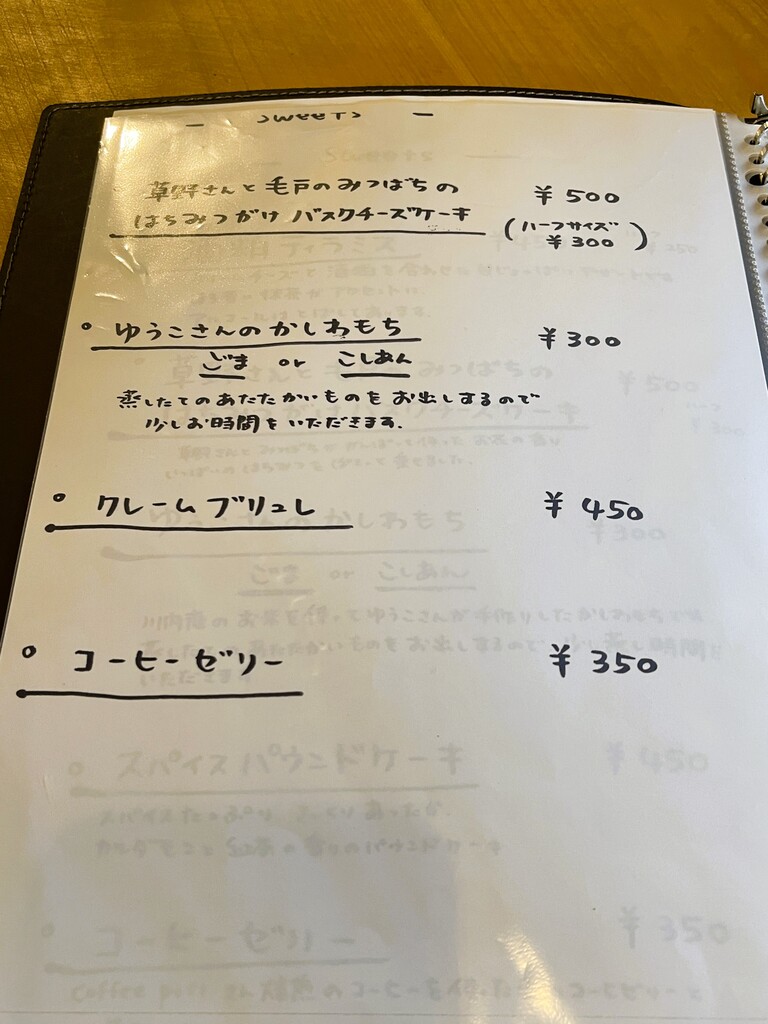 — Sweets —
草野さんと毛戸のみつばちの ¥500
はちみつがけ バスクチーズケーキ (ハーフサイズ ¥300)
○ ゆうこさんのかしわもち ¥300
ごま or こしあん
蒸したてのあたたかいものをお出しするので
少しお時間をいただきます.
○ クレームブリュレ ¥450
○ コーヒーゼリー ¥350